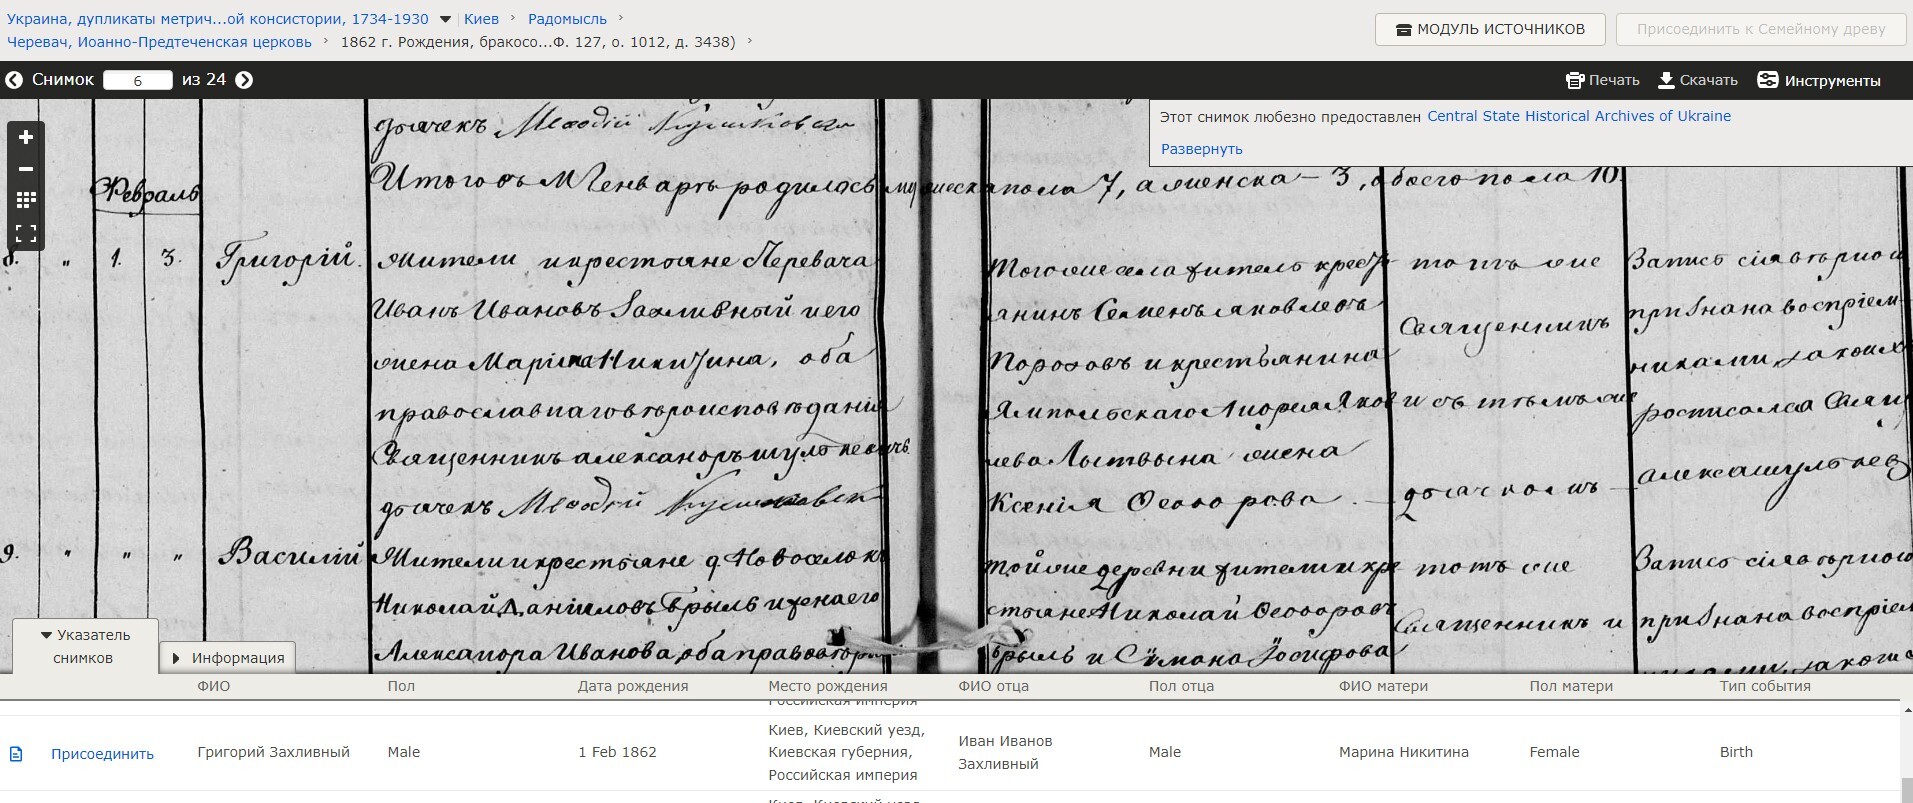 Украина, дупликаты метрич...ой консистории, 1734-1930 Киев Радомысль
Черевач, Иоанно-Предтеченская церковь 1862 г. Рождения, бракосо...Ф. 127, о. 1012, д. 3438)
МОДУЛЬ ИСТОЧНИКОВ
Присоединить к Семейному древу
Снимок 6 из 24
Печать Скачать Инструменты
Этот снимок любезно предоставлен Central State Historical Archives of Ukraine
Развернуть
дьячекъ Меѳодій
Итого въ М Генварѣ родилось мужеска пола 7, а женска - 3, обоего пола 10.
Февраль
8. " 1. 3. Григорій.
Жители и крестьяне Черевача
Иванъ Ивановъ Захливный и его
жена Марина Никитина, оба
православнаго вѣроисповѣданія
Священникъ Александръ
дьячекъ Меѳодій
Того же села житель кресть-
янинъ Семенъ Яковлевъ
Пороховъ и крестьянина
Ямпольскаго Андрея Яков
лева Лытвына жена
Ксенія Ѳеодорова
тотъ же
Священникъ
и съ тѣмъ же
дьячкомъ
Запись сія вѣрною
признана воспріем-
никами, за коихъ
росписался Свящ
9. " " " Василій
Жители и крестьяне д. Новоселокъ
Николай Даніиловъ Брыль и жена его
Александра Иванова, оба правов
той же деревни жители и кре
стьяне Николай Ѳеодоровъ
Брыль и Сѵмона Іосифова
тотъ же
Священникъ и
Запись сія вѣрною
признана воспріем
никами, за коихъ
Указатель
снимков
Информация
ФИО Пол Дата рождения Место рождения ФИО отца Пол отца ФИО матери Пол матери Тип события
Российская империя
Присоединить Григорий Захливный Male 1 Feb 1862 Киев, Киевский уезд, Киевская губерния, Российская империя Иван Иванов Захливный Male Марина Никитина Female Birth